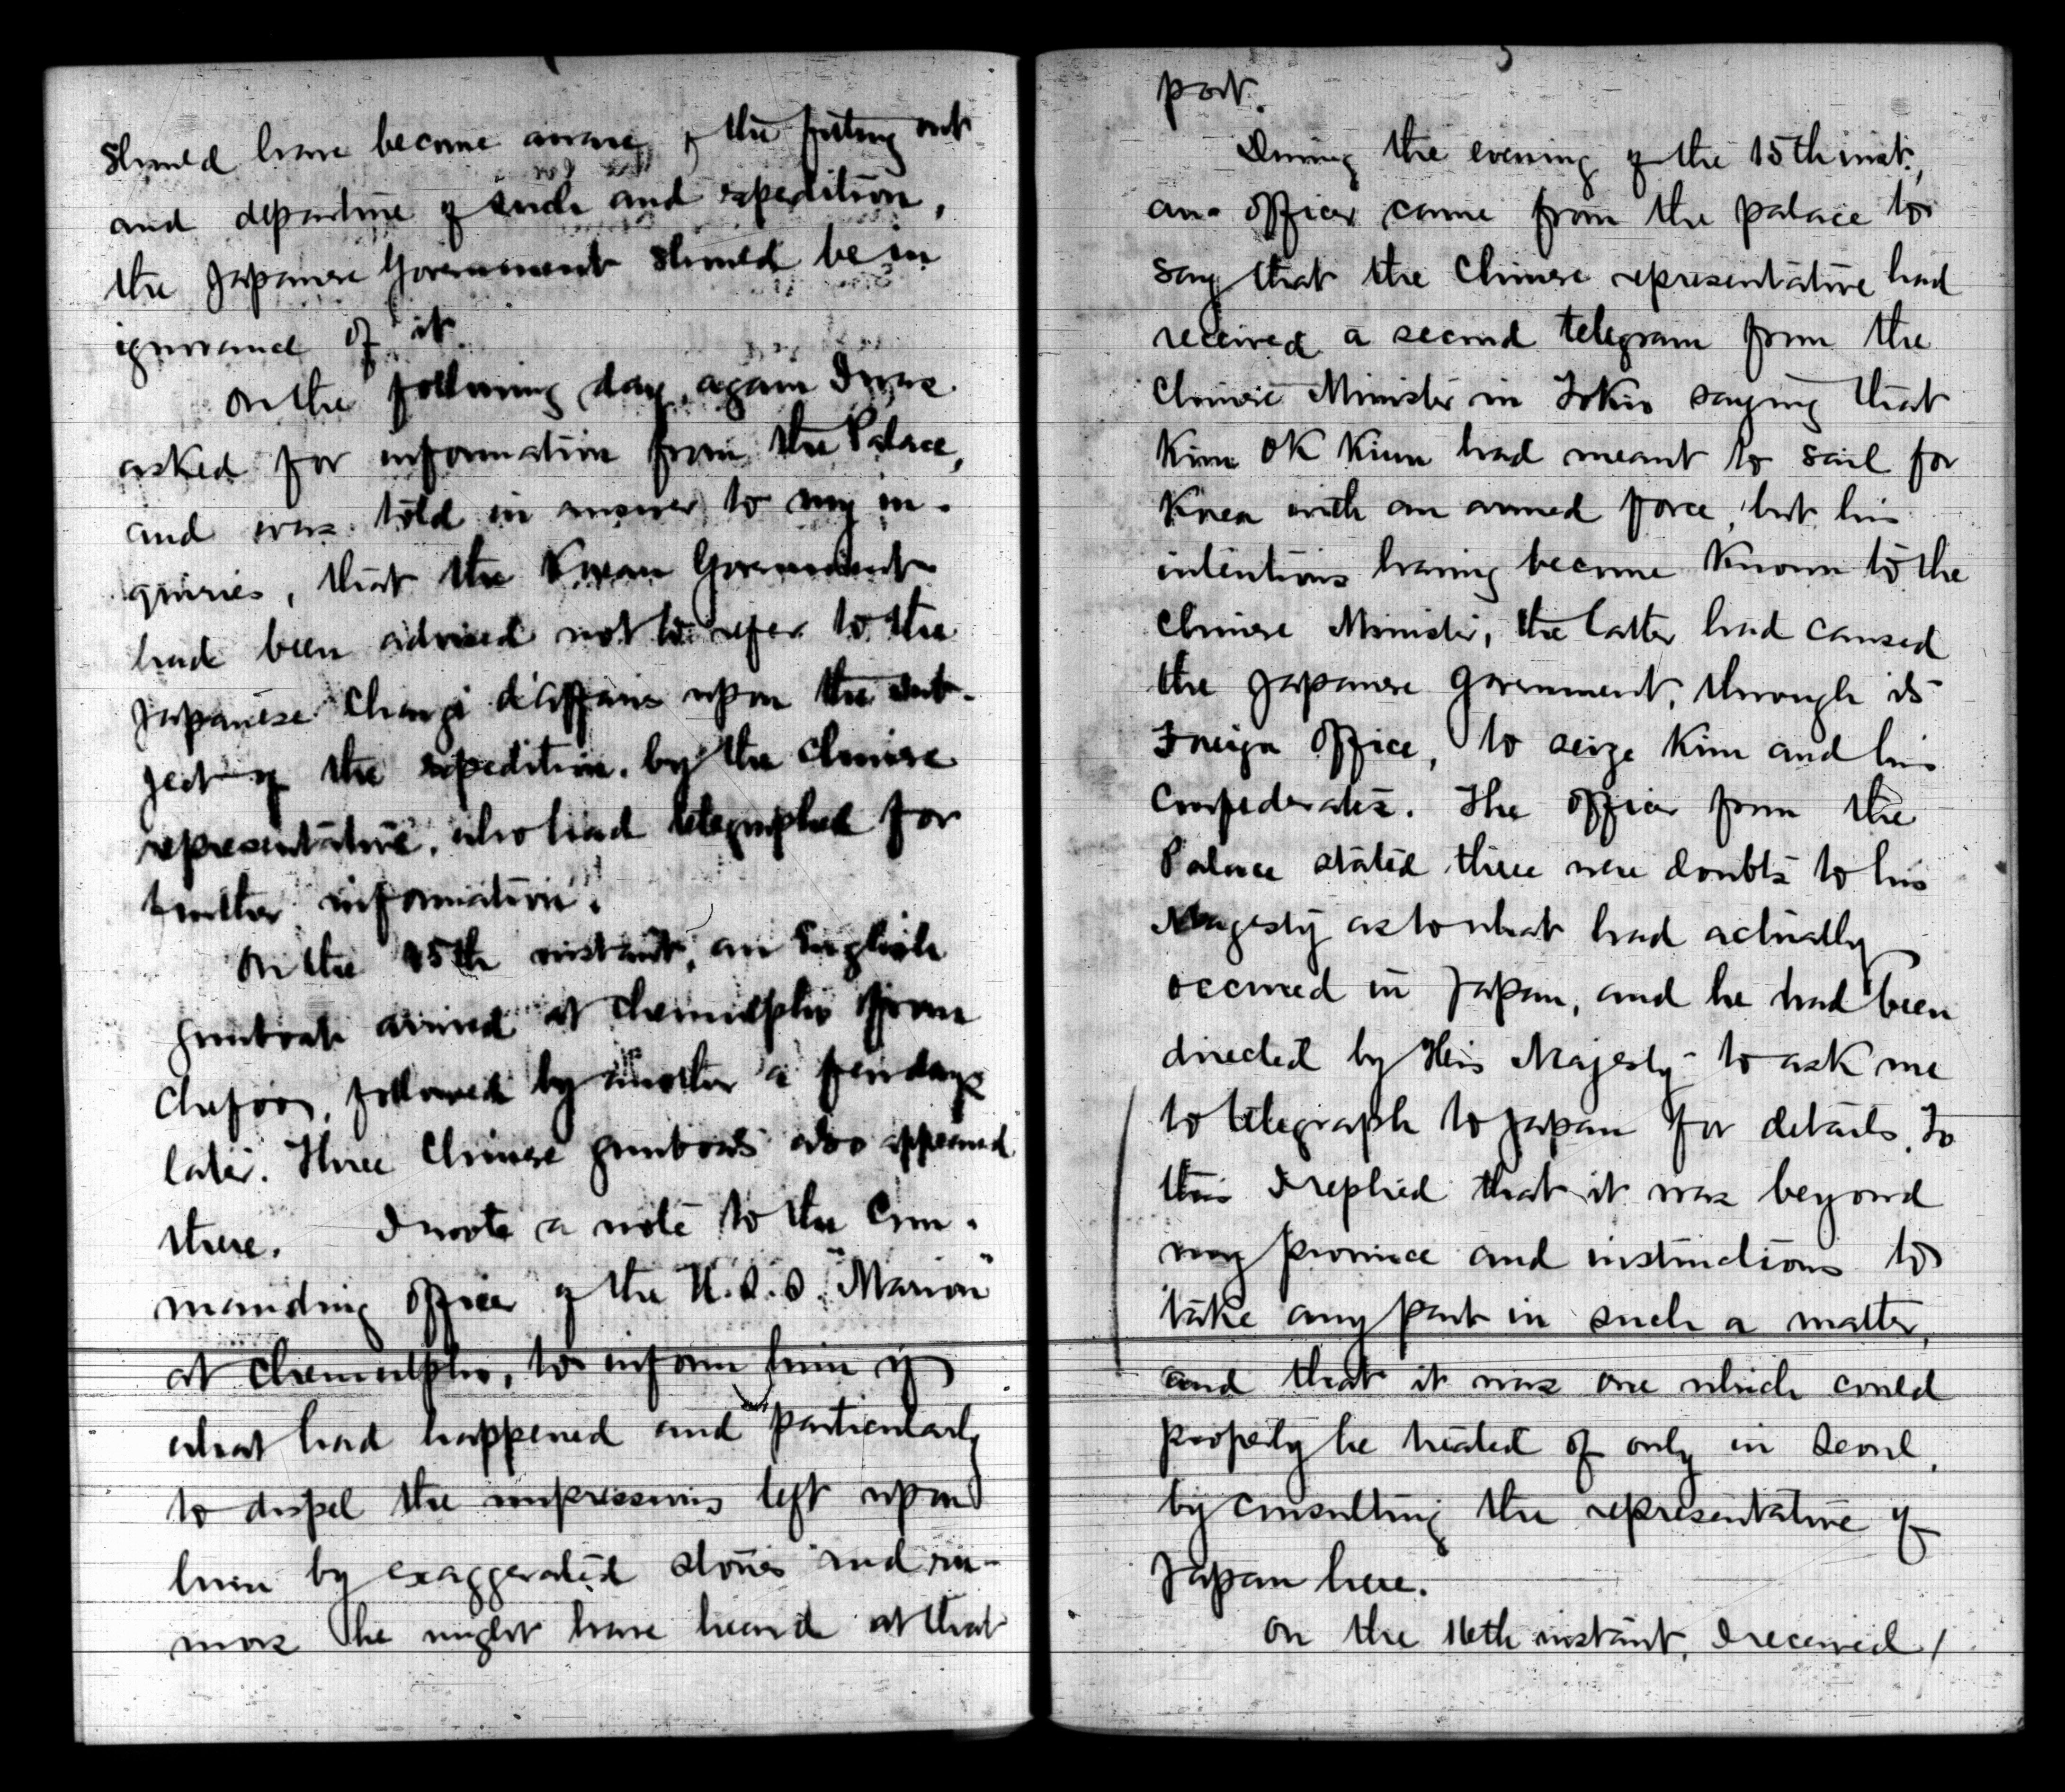 should have become aware of the fitting out
and departure of such and expedition,
the Japanese Government should be in
ignorance of it.
On the following day, again I was
asked for information from the Palace,
and was told in answer to my in-
quiries, that the Korean Government
had been advised not to refer to the
Japanese Chargé d'affaires upon the sub-
ject of the expedition, by the Chinese
representative, who had telegraphed for
further information.
On the 15th instant, an English
gunboat arrived at Chemulpho from
Chefoo, followed by another a few days
later. Three Chinese gunboats also appeared
there. I wrote a note to the Com-
manding officer of the U.S.S. "Marion"
at Chemulpho, to inform him of
what had happened and particularly
to dispel the impressions left upon
him by exaggerated stories and ru-
mors he might have heard at that
port.
During the evening of the 15th inst.,
an officer came from the palace to
say that the Chinese representative had
received a second telegram from the
Chinese Minister in Tokio saying that
Kim Ok Kiun had meant to sail for
Korea with an armed force, but his
intentions having become known to the
Chinese Minister, the latter had caused
the Japanese Government, through its
Foreign Office, to seize Kim and his
Confederates. The officer from the
Palace stated there were doubts to his
Majesty as to what had actually
occurred in Japan, and he had been
directed by His Majesty to ask me
to telegraph to Japan for details. To
this I replied that it was beyond
my province and instructions to
take any part in such a matter,
and that it was one which could
properly be treated of only in Seoul,
by consulting the representative of
Japan here.
On the 16th instant, I received